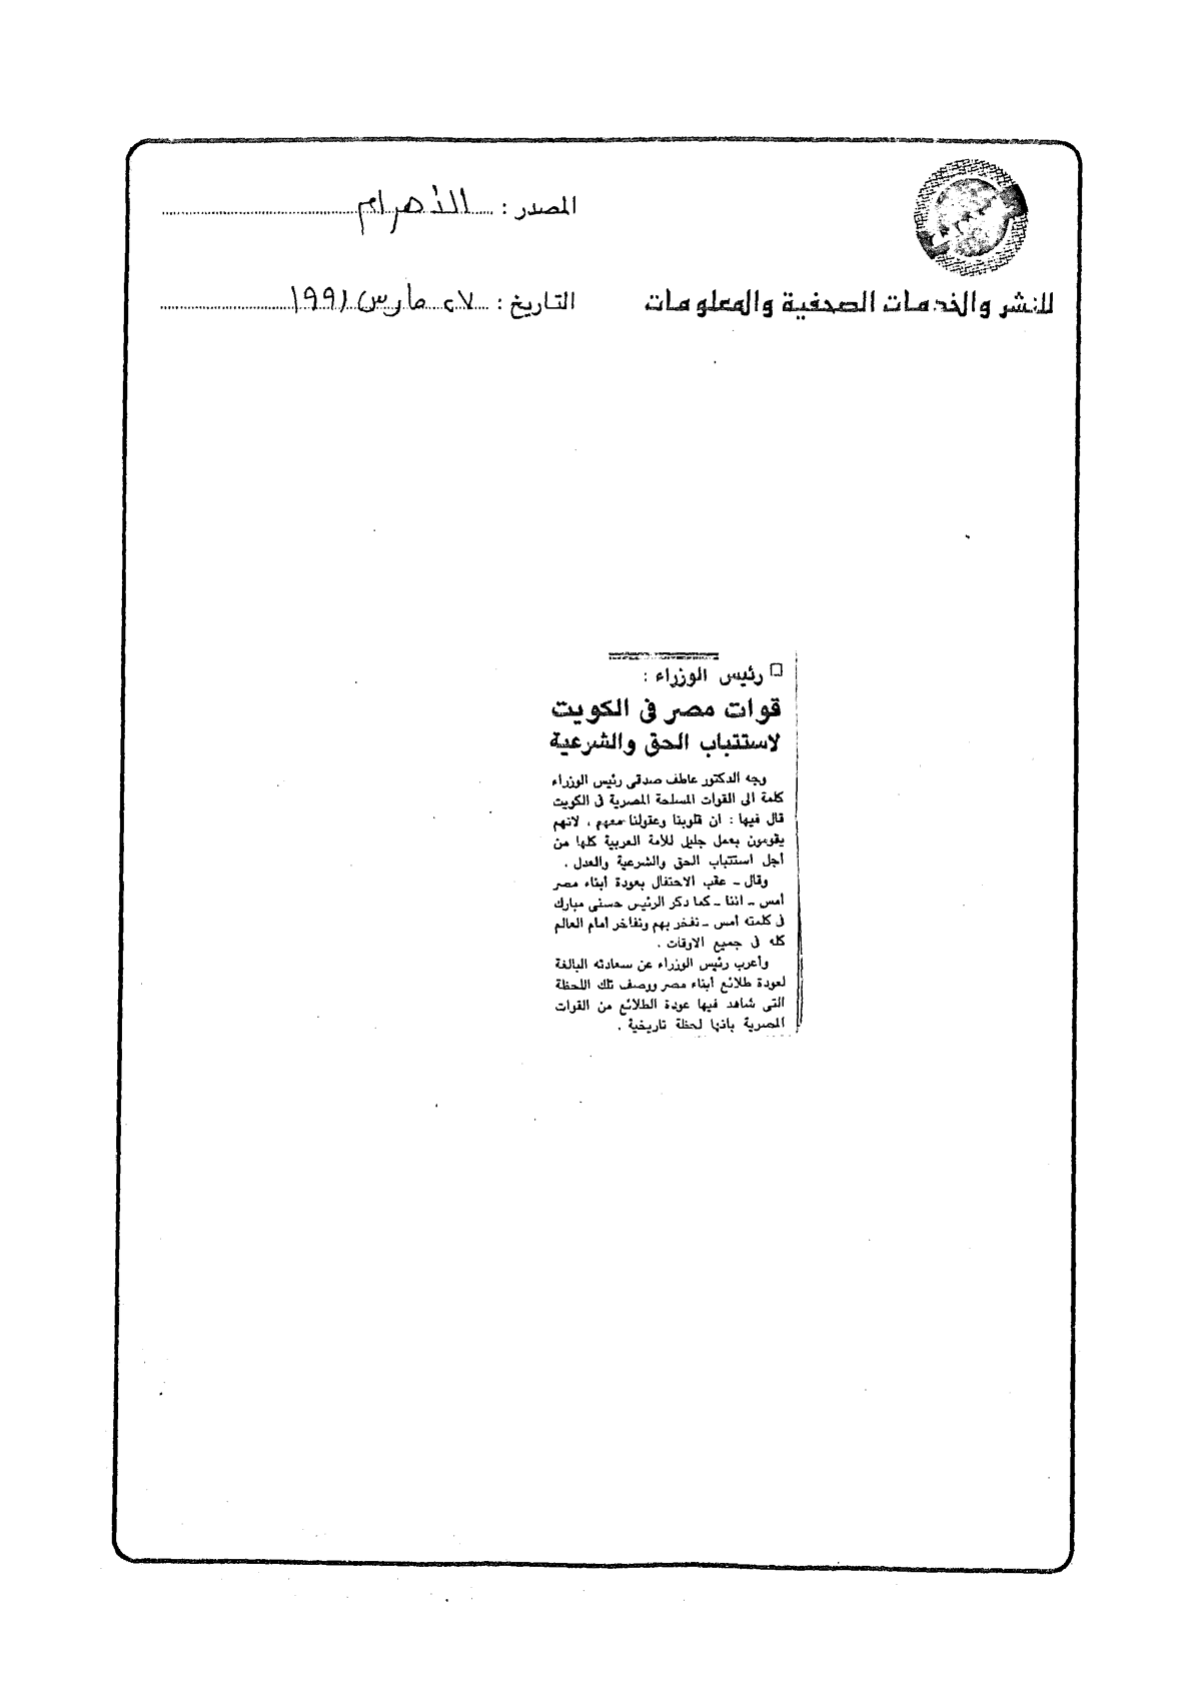 المصدر : الأهرام
للنشر والخدمات الصحفية والمعلومات
التاريخ : ٢٧ مارس ١٩٩١
□ رئيس الوزراء :
قوات مصر فى الكويت
لاستتباب الحق والشرعية
وجه الدكتور عاطف صدقى رئيس الوزراء
كلمة الى القوات المسلحة المصرية فى الكويت
قال فيها : ان قلوبنا وعقولنا معهم ، لانهم
يقومون بعمل جليل للأمة العربية كلها من
أجل استتباب الحق والشرعية والعدل .
وقال ــ عقب الاحتفال بعودة أبناء مصر
أمس ــ اننا ــ كما ذكر الرئيس حسنى مبارك
فى كلمته أمس ــ نفخر بهم ونفاخر أمام العالم
كله فى جميع الاوقات .
وأعرب رئيس الوزراء عن سعادته البالغة
لعودة طلائع أبناء مصر ووصف تلك اللحظة
التى شاهد فيها عودة الطلائع من القوات
المصرية بانها لحظة تاريخية .